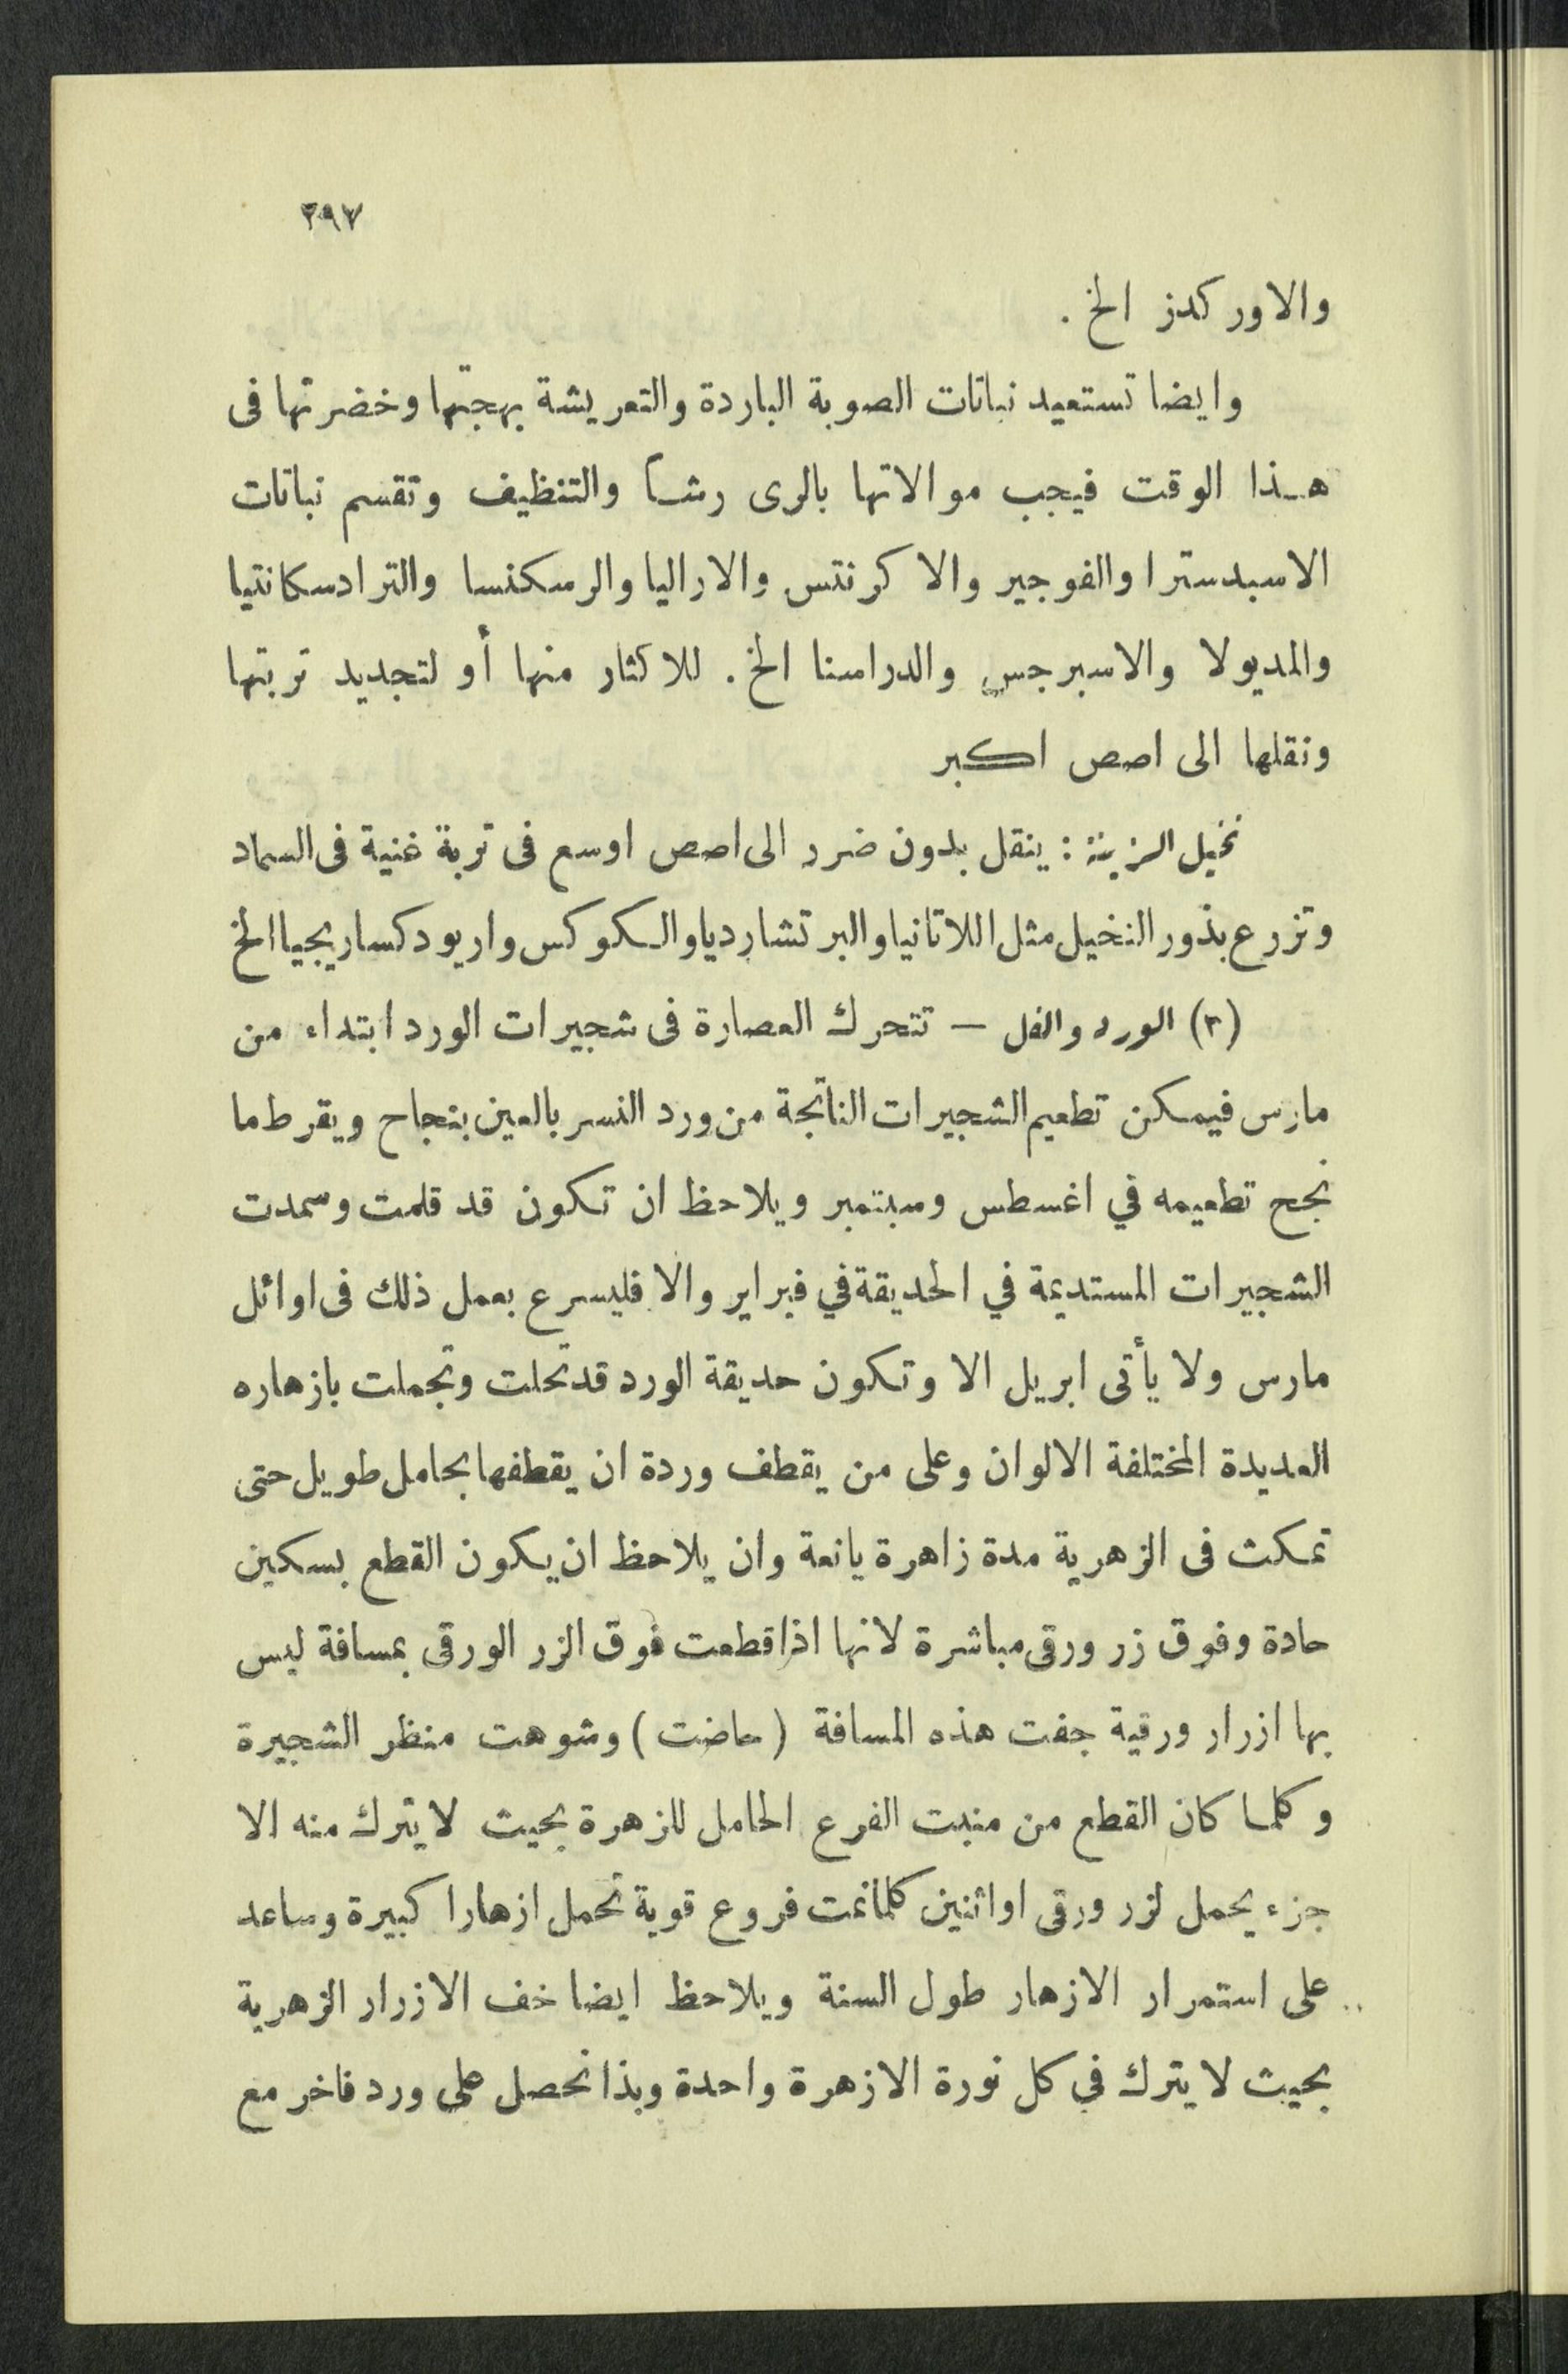 ٢٩٧
والاوركدز الخ .
وايضا تستعيد نباتات الصوبة الباردة والتعريشة بهجتها وخضرتها فى
هـذا الوقت فيجب موالاتها بالرى رشـا والتنظيف وتقسم نباتات
الاسبدسترا والفوجير والاكرنتس والاراليا والرسكنسا والترادسكانتيا
والمديولا والاسبرجس والدراسنا الخ . للاكثار منها أو لتجديد تربتها
ونقلها الى اصص اكبر
نخيل الزينة : ينقل بدون ضرر الى اصص اوسع فى تربة غنية فى السماد
وتزرع بذور النخيل مثل اللاتانيا والبرتشارديا والكوكس واريودكسا ريجيا الخ
(٣) الورد والفل — تتحرك العصارة فى شجيرات الورد ابتداء من
مارس فيمكن تطعيم الشجيرات الناتجة من ورد النسر بالعين بنجاح ويقرط ما
نجح تطعيمه في اغسطس وسبتمبر ويلاحظ ان تكون قد قلمت وسمدت
الشجيرات المستديمة في الحديقة في فبراير والا فليسرع بعمل ذلك فى اوائل
مارس ولا يأتى ابريل الا وتكون حديقة الورد قد تحلت وتجملت بازهاره
العديدة المختلفة الالوان وعلى من يقطف وردة ان يقطفها بحامل طويل حتى
تمكث فى الزهرية مدة زاهرة يانعة وان يلاحظ ان يكون القطع بسكين
حادة وفوق زر ورقى مباشرة لانها اذا قطعت فوق الزر الورقى بمسافة ليس
بها ازرار ورقية جفت هذه المسافة ( حاضت ) وشوهت منظر الشجيرة
وكلما كان القطع من منبت الفرع الحامل للزهرة بحيث لا يترك منه الا
جزء يحمل لزر ورقى او اثنين كلما نمت فروع قوية تحمل ازهارا كبيرة وساعد
على استمرار الازهار طول السنة ويلاحظ ايضا خف الازرار الزهرية
بحيث لا يترك في كل نورة الا زهرة واحدة وبذا نحصل على ورد فاخر مع